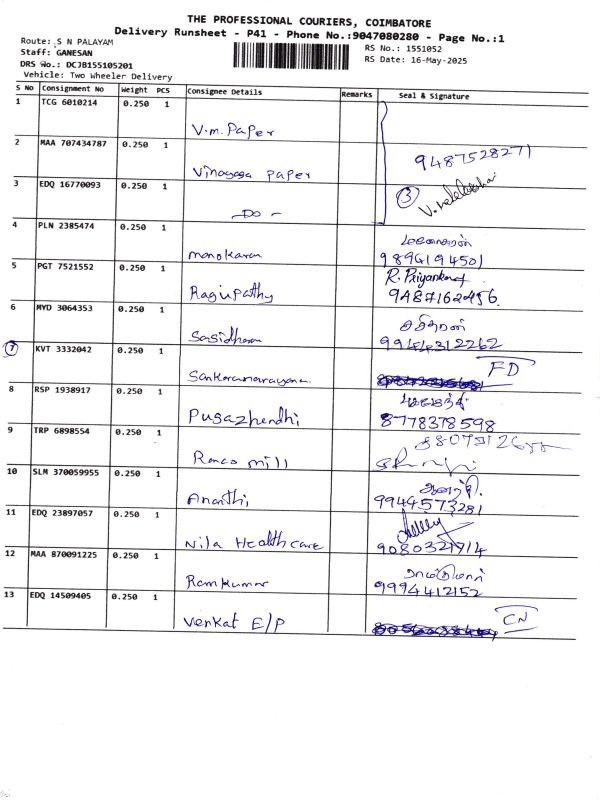 THE PROFESSIONAL COURIERS, COIMBATORE
Delivery Runsheet - P41 - Phone No.:9047080280 - Page No.:1
Route: S N PALAYAM
RS No.: 1551052
Staff: GANESAN
RS Date: 16-May-2025
DRS No.: DCJB155105201
Vehicle: Two Wheeler Delivery
S No Consignment No Weight PCS Consignee Details Remarks Seal & Signature
1 TCG 6010214 0.250 1
V.m. Paper
2 MAA 707434787 0.250 1
9487528271
Vinayaga paper
3 EDQ 16770093 0.250 1
3
- Do -
4 PLN 2385474 0.250 1
மனோகரன்
manokaran
9894194501
5 PGT 7521552 0.250 1
R. Priyanka
Ragupathy
9487162456.
6 MYD 3064353 0.250 1
சசிதரன்
Sasidharan
9944312262
7 KVT 3332042 0.250 1
FD
Sankaranarayana
8 RSP 1938917 0.250 1
Pugazhendhi
8778378598
9 TRP 6898554 0.250 1
Ranco mill
10 SLM 370059955 0.250 1
ஆனந்தி.
Ananthi
9944573281
11 EDQ 23897057 0.250 1
Nila Healthcare
9080321714
12 MAA 870091225 0.250 1
ராம்குமார்
Ramkumar
9994412152
13 EDQ 14509405 0.250 1
CN
Venkat E/P